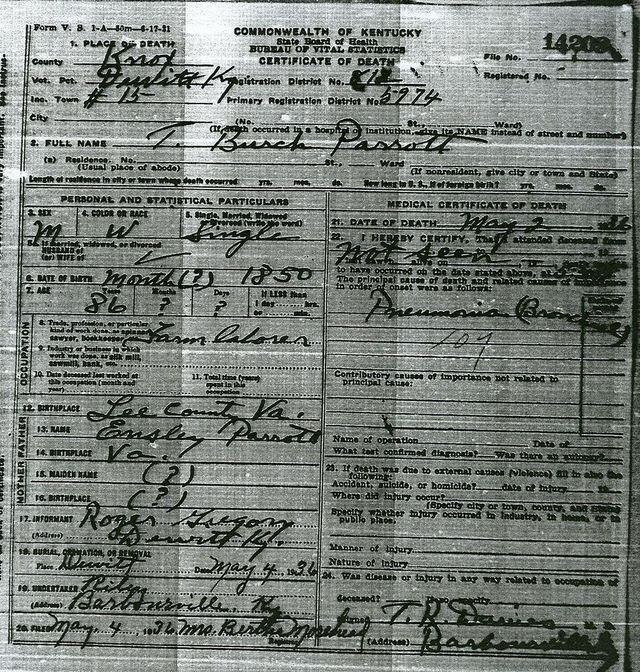 Form V. S. 1-A—50m—6-17-31
COMMONWEALTH OF KENTUCKY
State Board of Health
BUREAU OF VITAL STATISTICS
CERTIFICATE OF DEATH
File No.
Registered No.
1. PLACE OF DEATH
County Knox
Vot. Pct. Dewitt Ky Registration District No.
Inc. Town # 15 Primary Registration District No. 5974
City (No. St., Ward)
(If death occurred in a hospital or institution, give its NAME instead of street and number)
2. FULL NAME T. Burch Parrott
(a) Residence. No. St., Ward
(Usual place of abode) (If nonresident, give city or town and State)
Length of residence in city or town where death occurred yrs. mos. ds. How long in U. S., if of foreign birth? yrs. mos. ds.
PERSONAL AND STATISTICAL PARTICULARS
3. SEX 4. COLOR OR RACE 5. Single, Married, Widowed
M W Single
5a. If married, widowed, or divorced
HUSBAND of
(or) WIFE of
6. DATE OF BIRTH month (?) 1850
7. AGE Years Months Days If LESS than
86 ? ? 1 day hrs.
or min.
OCCUPATION
8. Trade, profession, or particular
kind of work done, as
sawyer, bookkeeper Farm laborer
9. Industry or business in which
work was done, as silk mill,
sawmill, bank, etc.
10. Date deceased last worked at
this occupation (month and
year)
11. Total time (years)
spent in this
occupation
12. BIRTHPLACE Lee County Va.
FATHER
13. NAME Ensley Parrott
14. BIRTHPLACE Va.
MOTHER
15. MAIDEN NAME (?)
16. BIRTHPLACE (?)
17. INFORMANT Roger
(Address) Dewitt Ky.
18. BURIAL, CREMATION, OR REMOVAL
Place Dewitt Date May 4, 1936
19. UNDERTAKER
(Address) Barbourville, Ky
20. FILED May 4, 1936 Mrs. Bertha
MEDICAL CERTIFICATE OF DEATH
21. DATE OF DEATH May 2
22. I HEREBY CERTIFY, That I attended deceased from
Not seen
to have occurred on the date stated above, at
The principal cause of death and related causes of importance
in order of onset were as follows:
Pneumonia
107
Contributory causes of importance not related to
principal cause:
Name of operation Date of
What test confirmed diagnosis? Was there an autopsy?
23. If death was due to external causes (violence) fill in also the
following:
Accident, suicide, or homicide? date of injury
Where did injury occur?
(Specify city or town, county, and State)
Specify whether injury occurred in industry, in home, or in
public place.
Manner of injury
Nature of injury
24. Was disease or injury in any way related to occupation of
deceased? If so, specify
Signed T. R. Davies M. D.
(Address) Barbourville